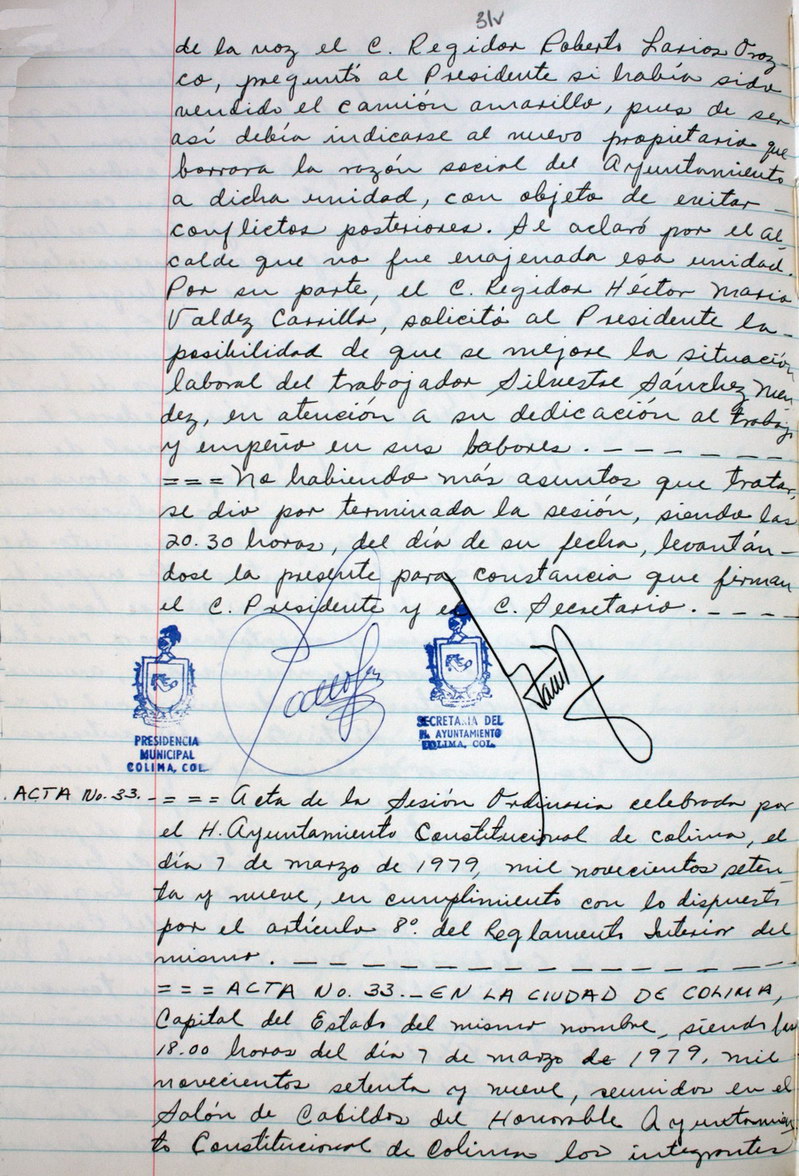 31v
de la voz el C. Regidor Roberto Larios Oroz-
co, preguntó al Presidente si había sido
vendido el camión amarillo, pues de ser
así debía indicarse al nuevo propietario que
borrara la razón social del Ayuntamiento
a dicha unidad, con objeto de evitar -
conflictos posteriores. Se aclaró por el al-
calde que no fue enajenada esa unidad.
Por su parte, el C. Regidor Héctor Mario
Valdez Carrillo, solicitó al Presidente la -
posibilidad de que se mejore la situación
laboral del trabajador Silvestre Sánchez Men
dez, en atención a su dedicación al trabajo
y empeño en sus labores. - - - - - - -
= = = No habiendo más asuntos que tratar,
se dio por terminada la sesión, siendo las
20.30 horas, del día de su fecha, levantán-
dose la presente para constancia que firman
el C. Presidente y el C. Secretario. - - - -
PRESIDENCIA
MUNICIPAL
COLIMA, COL.
SECRETARIA DEL
H. AYUNTAMIENTO
COLIMA, COL.
ACTA No. 33. - = = = Acta de la Sesión Ordinaria celebrada por
el H. Ayuntamiento Constitucional de Colima, el
día 7 de marzo de 1979, mil novecientos seten
ta y nueve, en cumplimiento con lo dispuesto
por el artículo 8o. del Reglamento Interior del
mismo. - - - - - - - - - - - - - - -
= = = ACTA No. 33. - EN LA CIUDAD DE COLIMA,
Capital del Estado del mismo nombre, siendo las
18.00 horas del día 7 de marzo de 1979, mil
novecientos setenta y nueve, reunidos en el
Salón de Cabildos del Honorable Ayuntamien
to Constitucional de Colima los integrantes